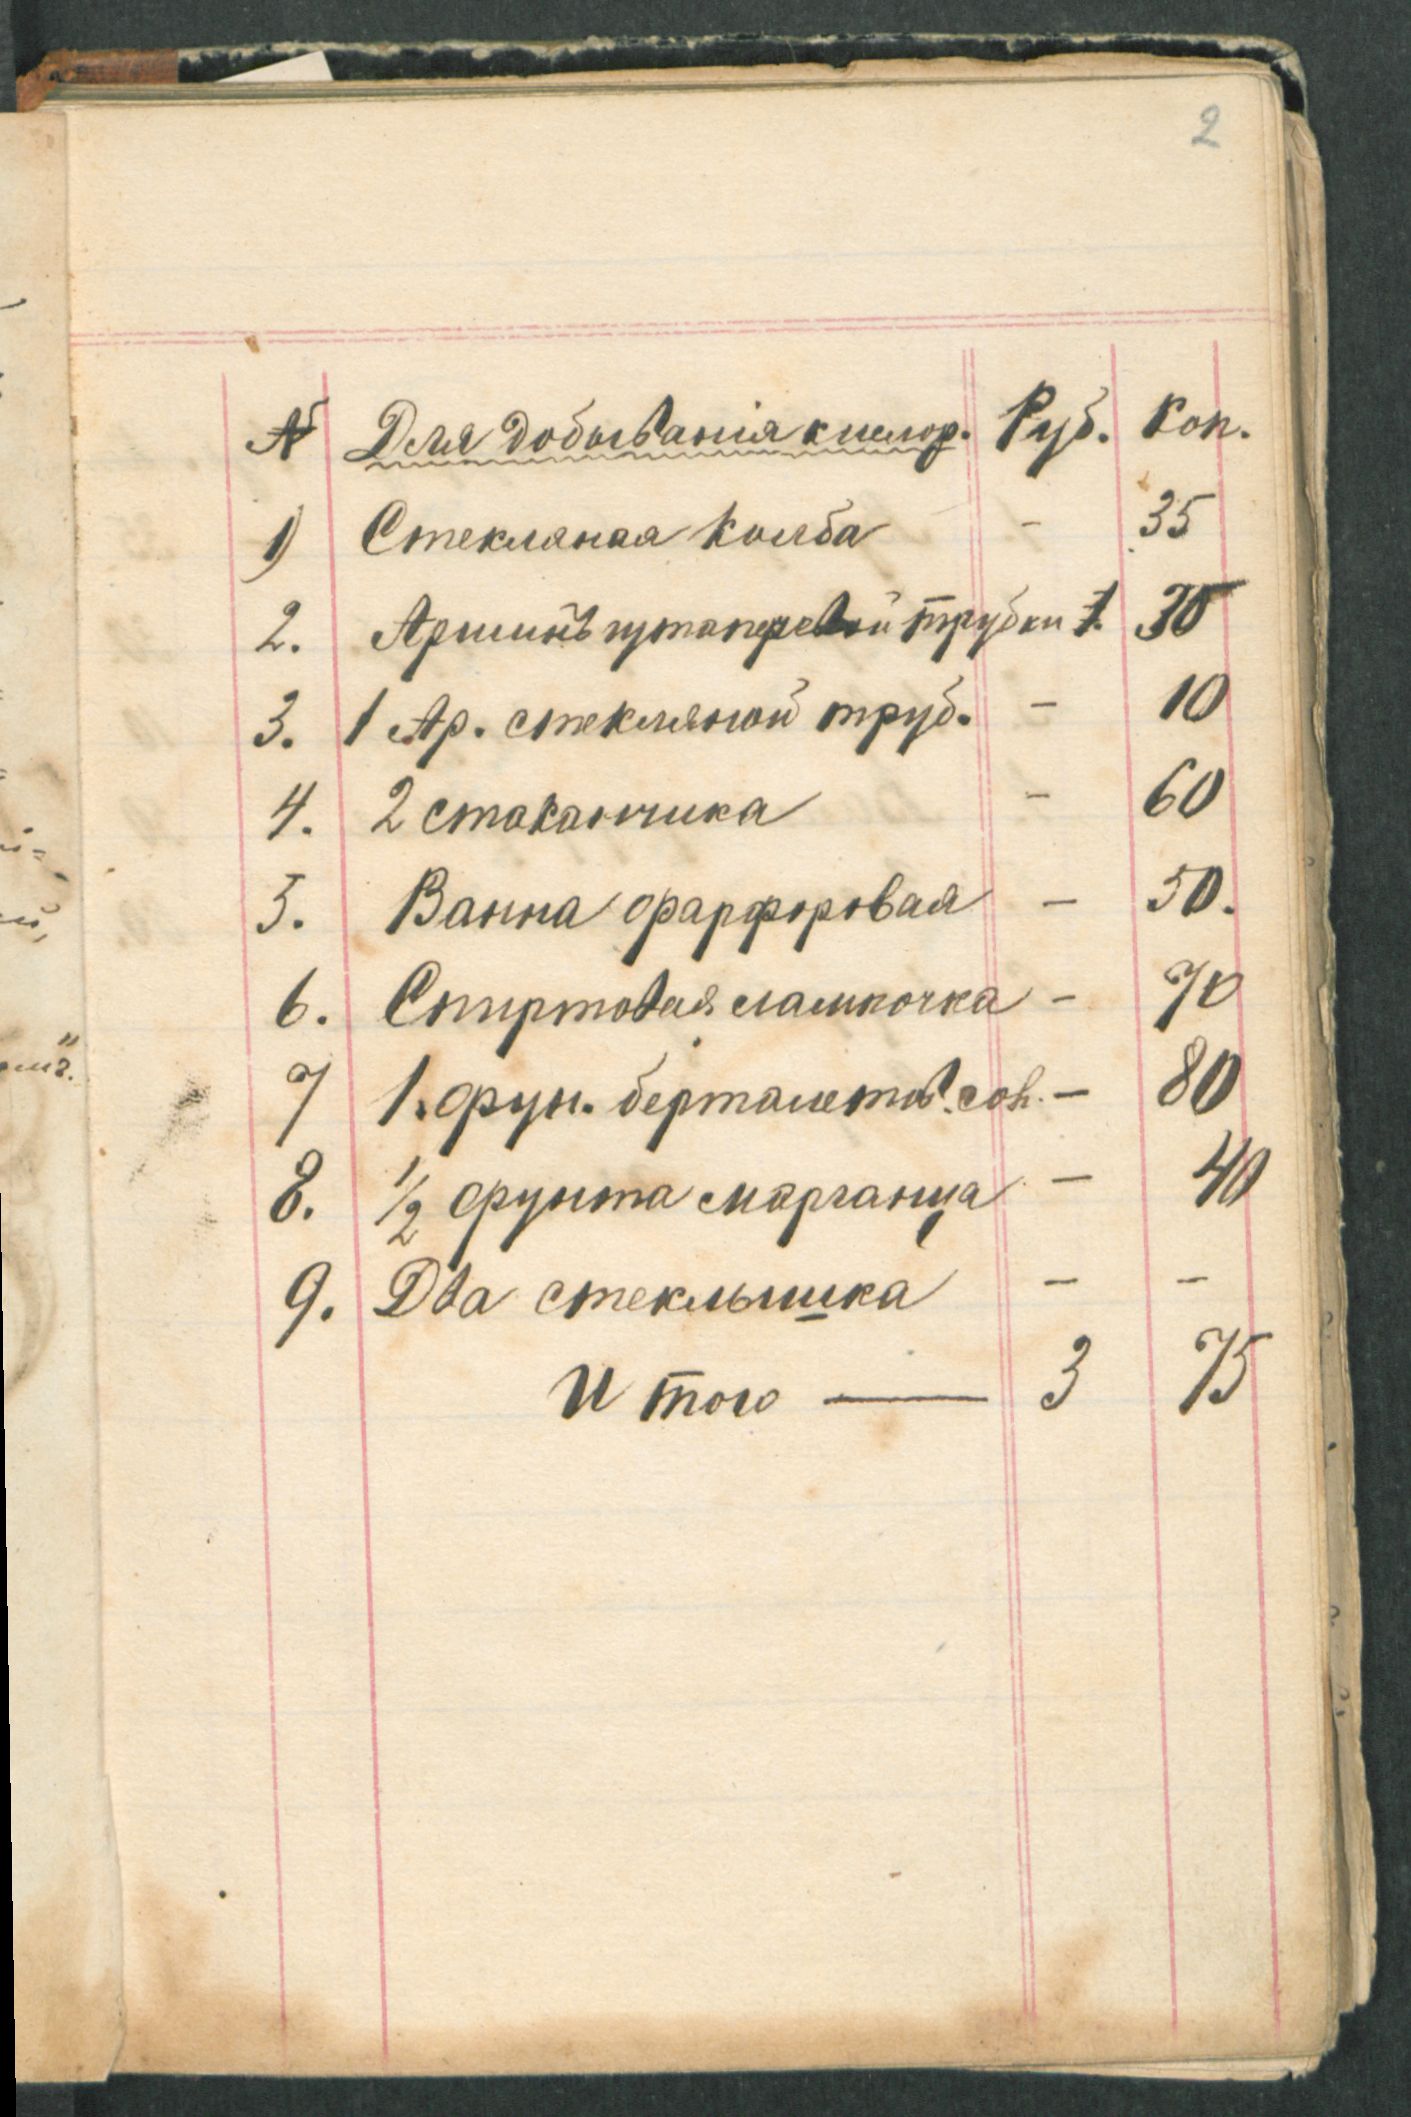 2
№ Для добыванія кислор. Руб. Коп.
1) Стекляная колба - 35
2. Аршинъ гутаперевой трубки 1. 30
3. 1 Ар. стекляной труб. - 10
4. 2 стаканчика - 60
5. Ванна фарфоровая - 50.
6. Спиртовая лампочка - 70
7 1. фун. берталетов. сол. - 80
8. 1/2 фунта марганца - 40
9. Два стеклышка - -
Итого — 3 75